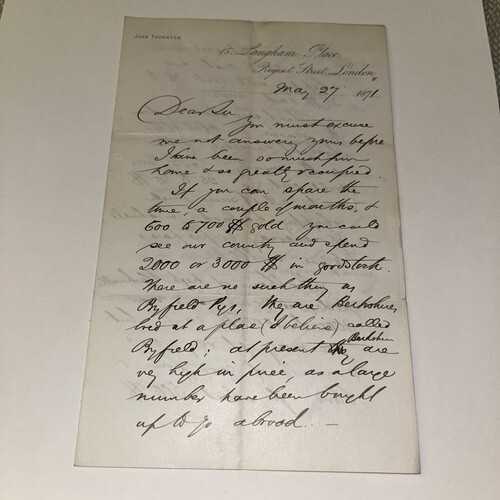 JOHN THORNTON
15. Langham Place,
Regent Street, London,
May 27 1871.
Dear Sir
You must excuse
me not answering yours before
I have been so much from
home & so greatly occupied
If you can spare the
time, a couple of months, &
600 to 700 $ gold you could
see our country and spend
2000 or 3000 $ in good stock.
There are no such thing as
Byfield Pigs, they are Berkshires
bred at a place (I believe) called
Byfield; at present Berkshires are
very high in price, as a large
number have been bought
up to go abroad. —